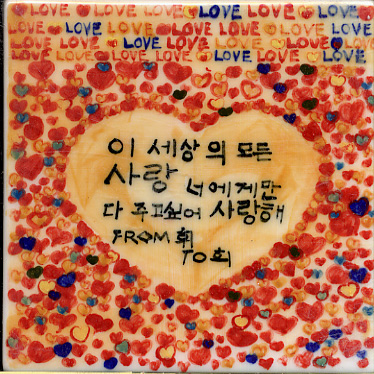 LOVE LOVE LOVE LOVE LOVE
LOVE LOVE LOVE LOVE LOVE
LOVE LOVE LOVE LOVE LOVE LOVE
LOVE LOVE LOVE LOVE LOVE LOVE
LOVE LOVE LOVE LOVE LOVE LOVE
이 세상의 모든
사랑 너에게만
다 주고싶어 사랑해
FROM 휘
TO 희